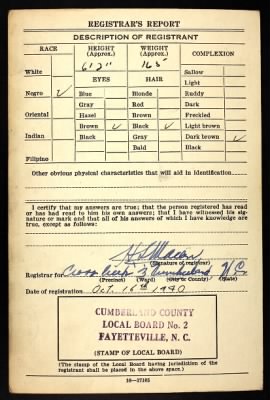 REGISTRAR'S REPORT
DESCRIPTION OF REGISTRANT
RACE HEIGHT (Approx.) WEIGHT (Approx.) COMPLEXION
6'2" 165
White Sallow
EYES HAIR Light
Negro ✓ Blue Blonde Ruddy
Gray Red Dark
Oriental Hazel Brown Freckled
Brown ✓ Black ✓ Light brown
Indian Black Gray Dark brown ✓
Bald Black
Filipino
Other obvious physical characteristics that will aid in identification
I certify that my answers are true; that the person registered has read
or has had read to him his own answers; that I have witnessed his
signature or mark and that all of his answers of which I have knowledge
are true, except as follows:
(Signature of registrar)
Registrar for Cross Creek 3 Cumberland, N.C.
(Precinct) (Ward) (City or County) (State)
Date of registration Oct. 16th 1940
CUMBERLAND COUNTY
LOCAL BOARD No. 2
FAYETTEVILLE, N. C.
(STAMP OF LOCAL BOARD)
(The stamp of the Local Board having jurisdiction of the
registrant shall be placed in the above space.)
16—17105